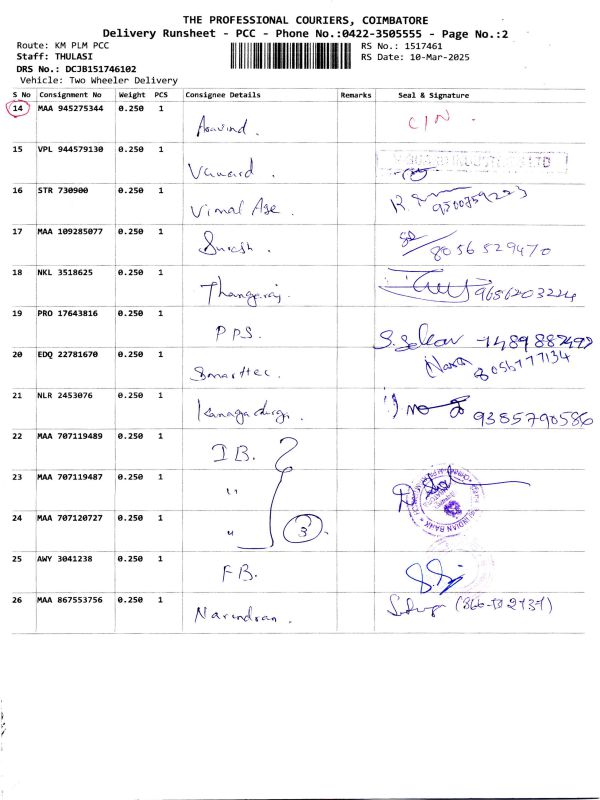 THE PROFESSIONAL COURIERS, COIMBATORE
Delivery Runsheet - PCC - Phone No.:0422-3505555 - Page No.:2
Route: KM PLM PCC
RS No.: 1517461
Staff: THULASI
RS Date: 10-Mar-2025
DRS No.: DCJB151746102
Vehicle: Two Wheeler Delivery
S No Consignment No Weight PCS Consignee Details Remarks Seal & Signature
14 MAA 945275344 0.250 1 Aravind. C/N.
15 VPL 944579130 0.250 1
16 STR 730900 0.250 1 Vimal Age.
17 MAA 109285077 0.250 1 Suresh. 8056529470
18 NKL 3518625 0.250 1 Thangaraj. 9656203224
19 PRO 17643816 0.250 1 PPS.
20 EDQ 22781670 0.250 1 Smarttec.
21 NLR 2453076 0.250 1 Kanaga durga 9385790586
22 MAA 707119489 0.250 1 IB.
23 MAA 707119487 0.250 1 "
24 MAA 707120727 0.250 1 " 3
INDIAN BANK
25 AWY 3041238 0.250 1 FB.
26 MAA 867553756 0.250 1 Narendran.